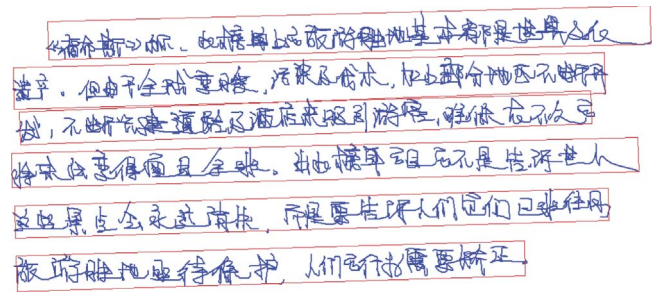 《福布斯》称,此榜单上的旅游胜地基本都是世界文化
遗产。但由于全球变暖,污染及伐木,加上部分地区不断开
发,不断兴建道路及酒店来吸引游客,难保在不久
将来会变得面目全非。此榜单目的不是告诉世人
这些景点会永远消失,而是要告诉人们它们已非往
旅游胜地亟待保护,人们言行也需要矫正。